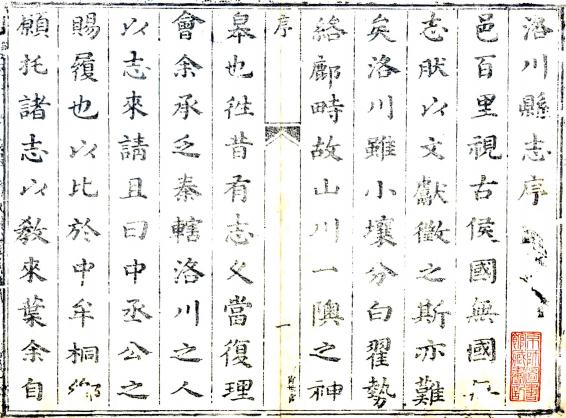 洛川縣志序
邑百里視古侯國無國
志肰以文獻徵之斯亦難
矣洛川雖小壤分白翟勢
絡鄜畤故山川一隩之神
序
一
皋也徃昔有志乂當復理
會余承乏秦轄洛川之人
以志來請且曰中丞公之
賜履也以比於中牟桐鄉
願托諸志以教來葉余自